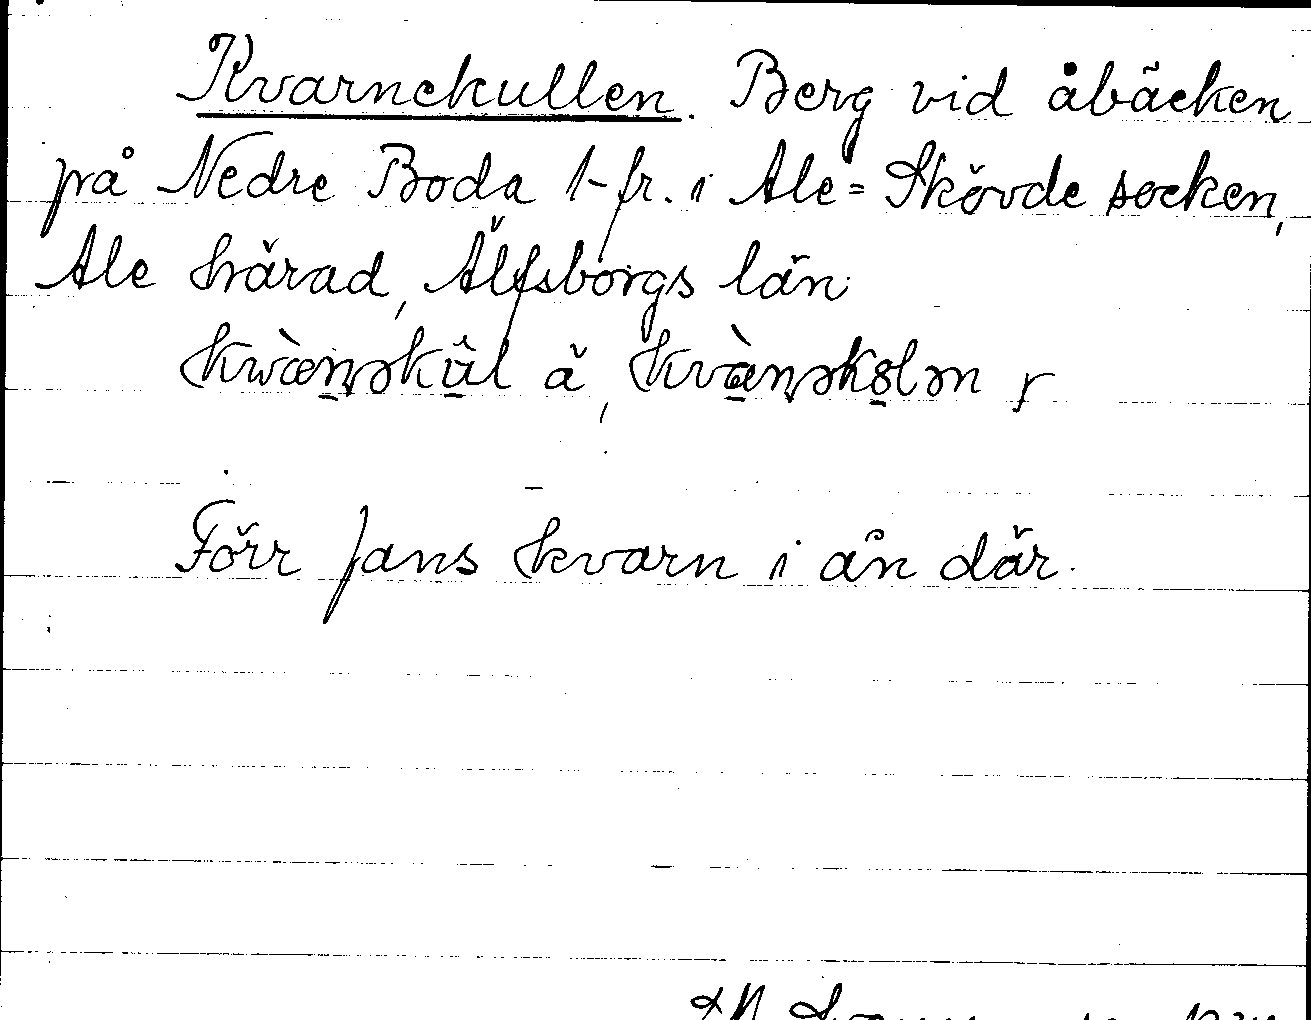 Kvarnekullen. Berg vid åbäcken
på Nedre Boda 1-fr. i Ale-Skövde socken,
Ale härad, Älfsborgs län.
kwàn̥əkûl ä, kvàn̥əkolən r
Förr fans kvarn i ån där.